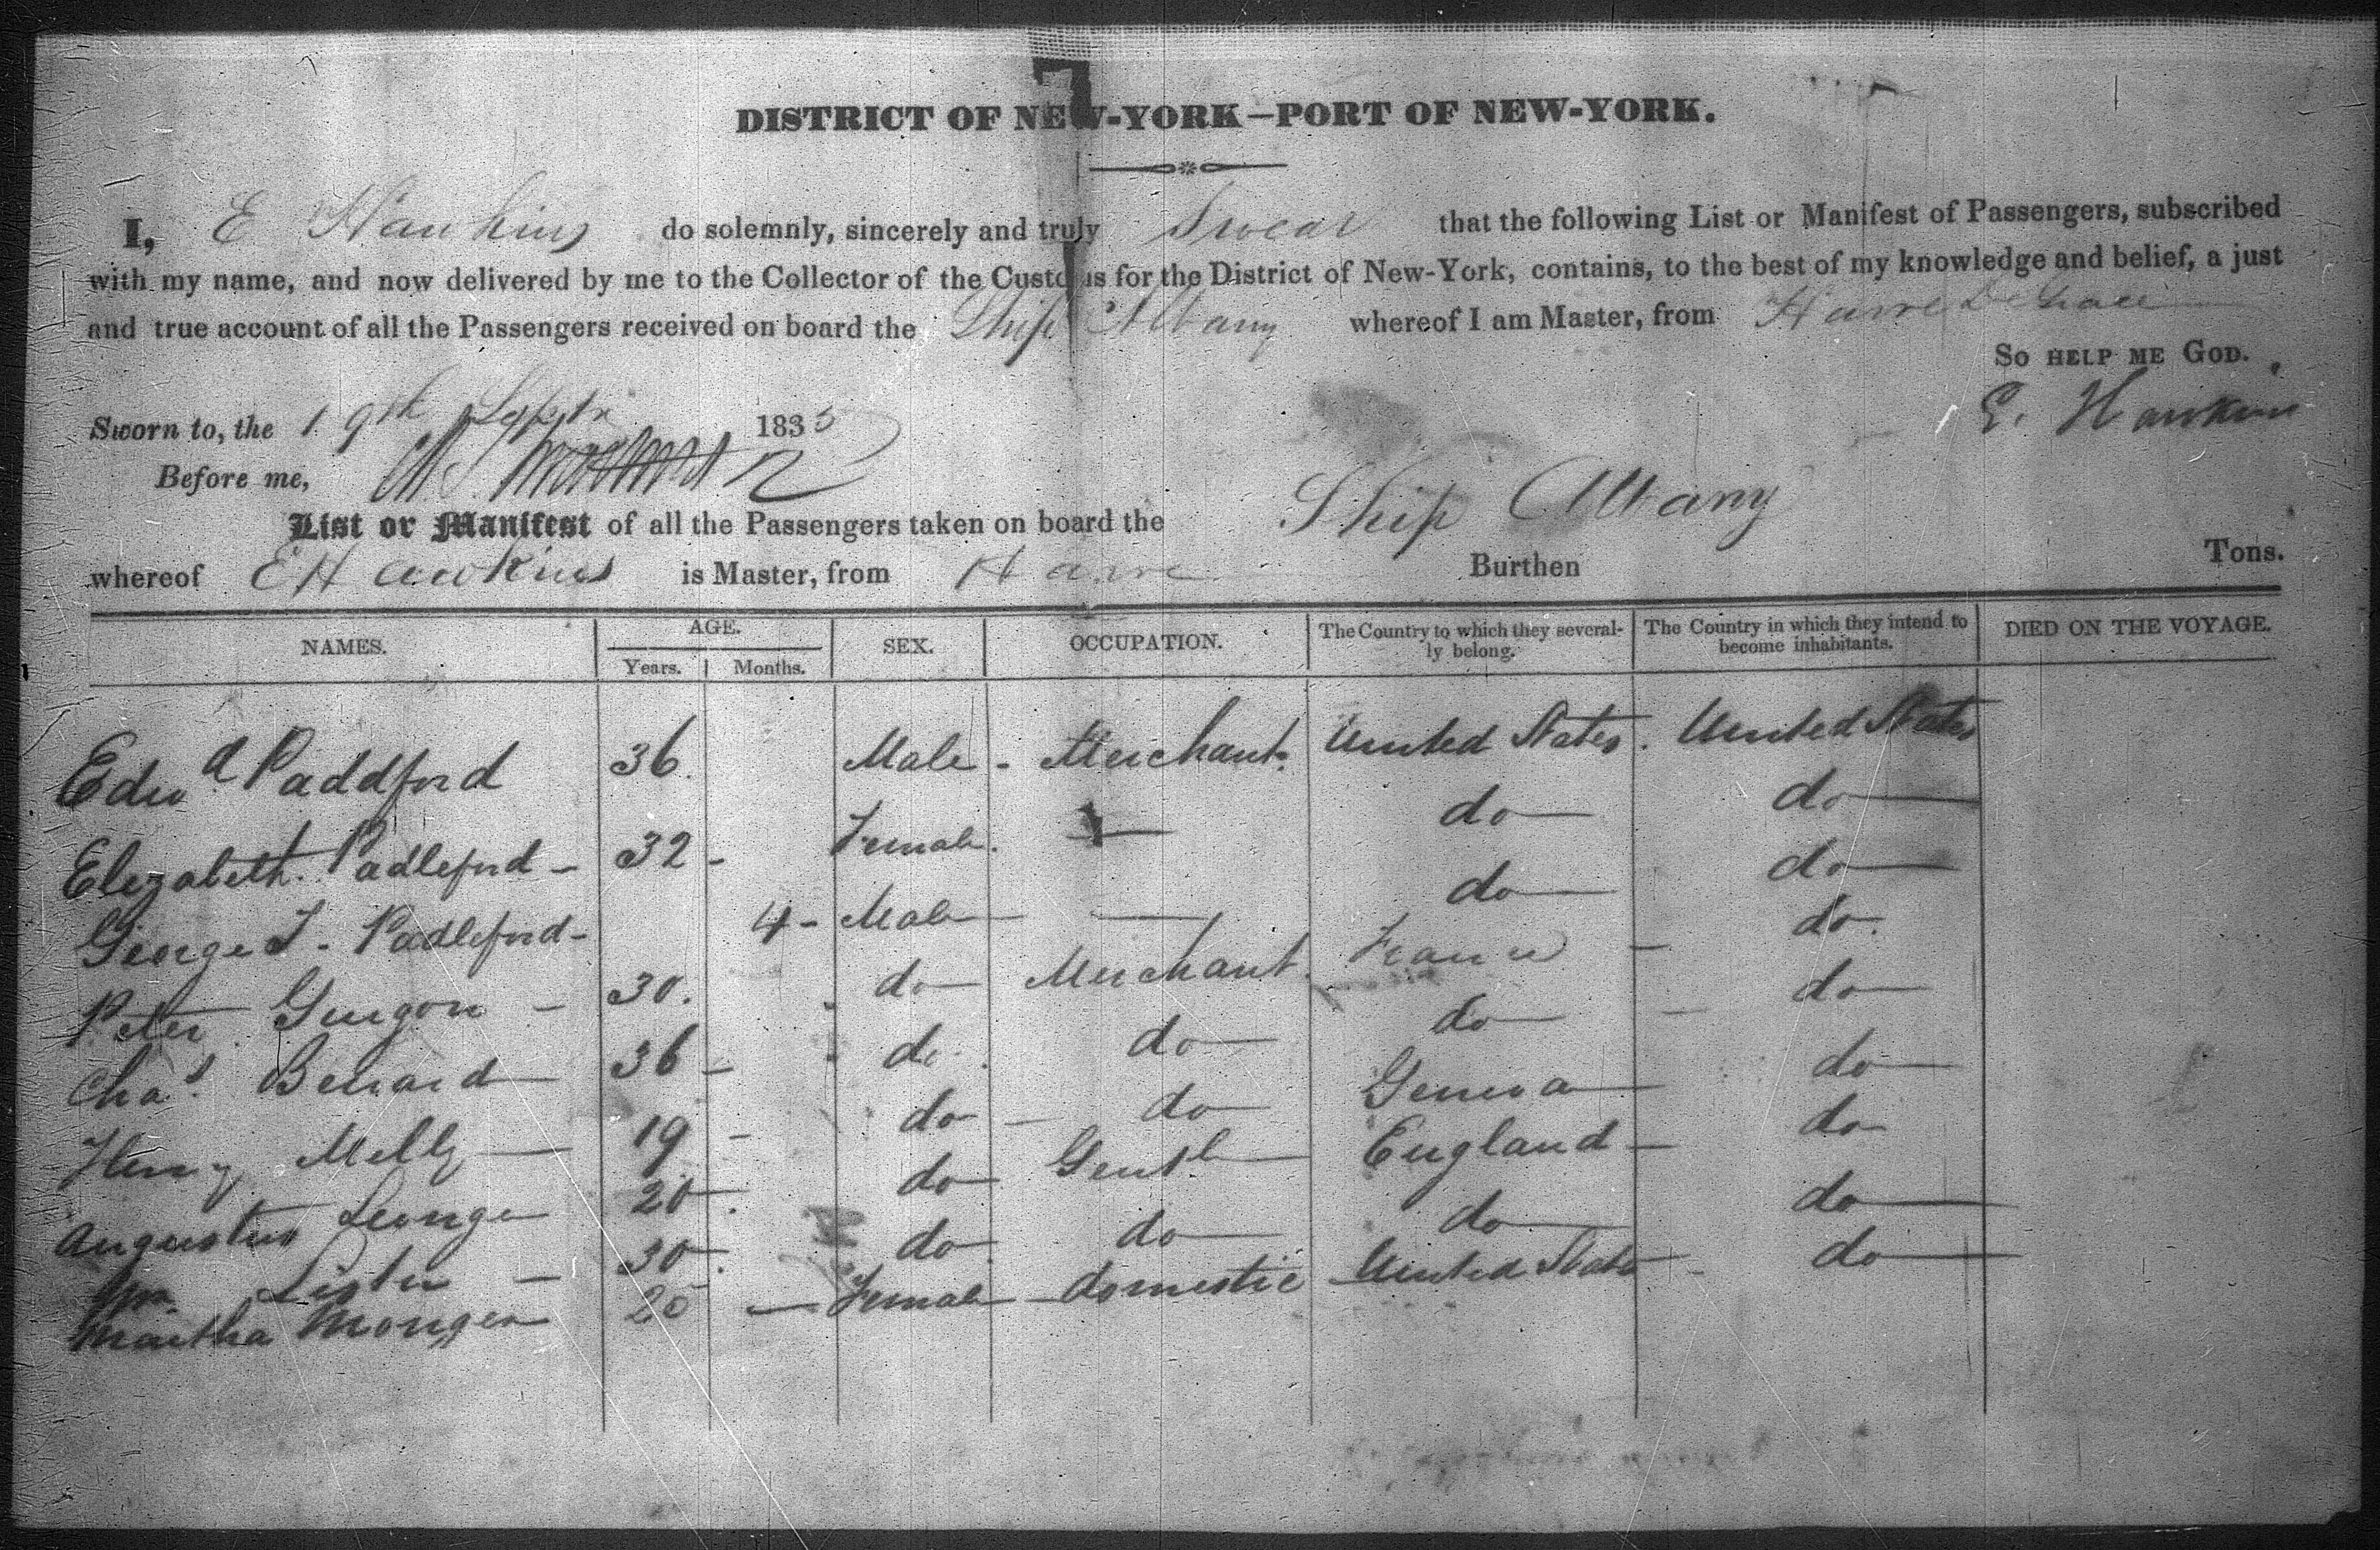 DISTRICT OF NEW-YORK—PORT OF NEW-YORK.
I, E Hawkins do solemnly, sincerely and truly Swear that the following List or Manifest of Passengers, subscribed
with my name, and now delivered by me to the Collector of the Customs for the District of New-York, contains, to the best of my knowledge and belief, a just
and true account of all the Passengers received on board the Ship Albany whereof I am Master, from Havre De Grace
So help me God.
Sworn to, the 19th Septr 1833 E. Hawkins
Before me,
List or Manifest of all the Passengers taken on board the Ship Albany
whereof E Hawkins is Master, from Havre Burthen Tons.
NAMES. AGE. Years. Months. SEX. OCCUPATION. The Country to which they severally belong. The Country in which they intend to become inhabitants. DIED ON THE VOYAGE.
Edwd Paddford 36. Male - Merchant. United States. United States
Elizabeth Padleford - 32 - Female. — do — do —
George F. Padleford - 4 - Male — — do — do —
Peter - 30. do — Merchant. France - do.
Chas. Benard — 36 - do. do — do — - do —
Henry Melly — 19 - do - do — Geneva — do —
Augustus George 20 - do Gentl — England - do
Wm. Lister - 30 - do do — do — do —
Martha Monger 20 — Female - domestic United State - do —